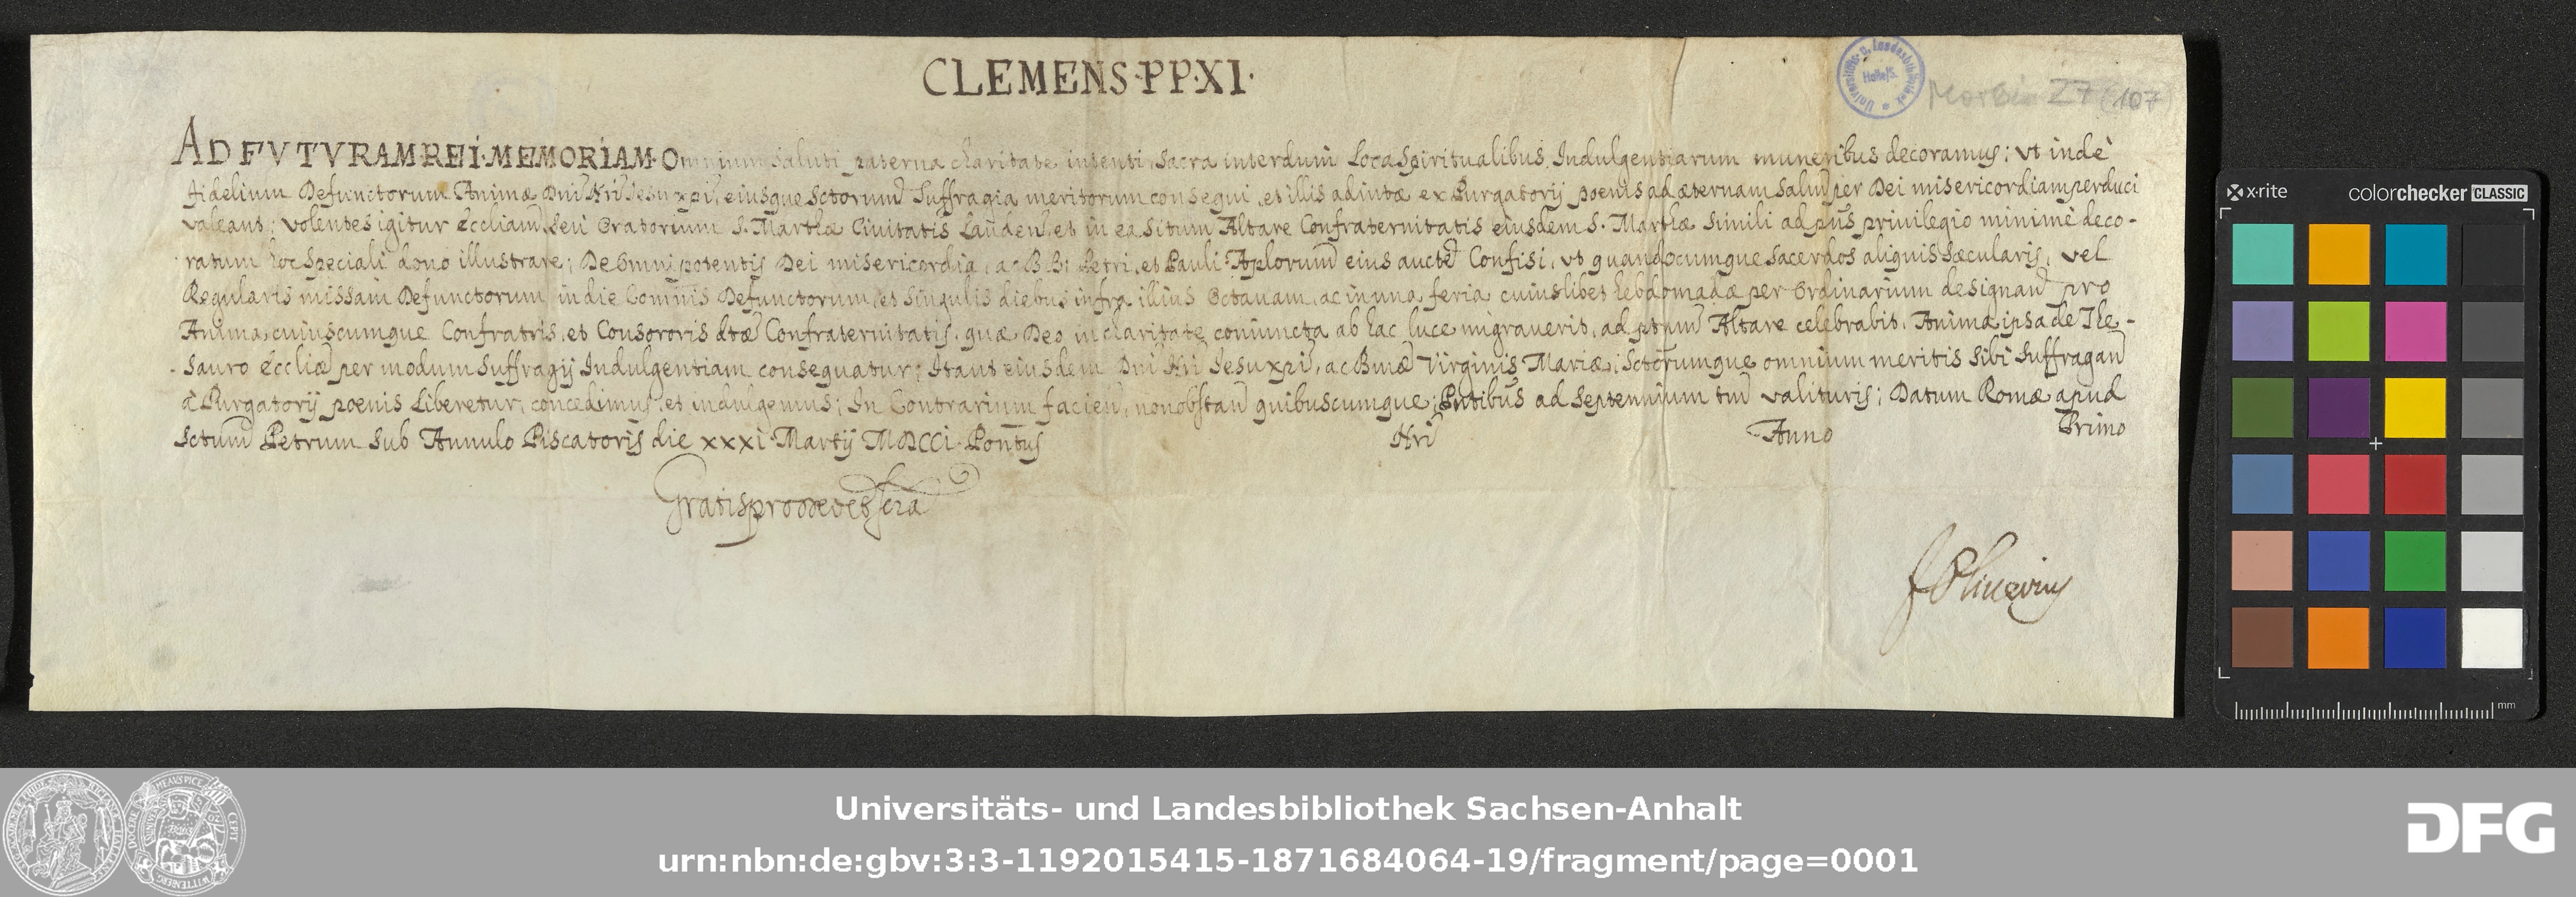 CLEMENS·PP·XI·
Universitäts- u. Landesbibliothek Halle/S.
Morbio 27 (107)
AD FVTVRAM·REI·MEMORIAM·Omnium saluti paterna charitate intenti, sacra interdum Loca Spiritualibus Indulgentiarum muneribus decoramus; vt indè
fidelium Defunctorum Animæ Dni Nri Jesu xpi, eiusque Sctorum Suffragia meritorum consequi, et illis adiutæ ex Purgatorij poenis ad æternam Salut per Dei misericordiam perduci
valeant; Volentes igitur Eccliam, Seu Oratorium S. Marthæ Ciuitatis Lauden, et in ea Situm Altare Confraternitatis eiusdem S. Marthæ Simili ad pns priuilegio minimè deco-
ratum hoc Speciali dono illustrare; De Omnipotentis Dei misericordia, ac BB: Petri, et Pauli Aplorum eius aucte Confisi, vt quandocumque Sacerdos aliquis Sæcularis, vel
Regularis missam Defunctorum in die Comnis Defunctorum, et Singulis diebus infra illius Octauam, ac in una feria cuiuslibet hebdomadæ per Ordinarium designand pro
Anima cuiuscumque Confratris, et Consororis dtæ Confraternitatis, quæ Deo in charitate coniuncta ab hac luce migrauerit, ad ptum Altare celebrabit, Anima ipsa de The-
sauro Eccliæ per modum Suffragij Indulgentiam consequatur; Ita ut eiusdem Dni Nri Jesu xpi, ac Bmæ Virginis Mariæ, Sctorumque omnium meritis Sibi Suffragan
à Purgatorij poenis Liberetur, concedimus, et indulgemus; In Contrarium facien, non obstan quibuscumque; Pntibus ad Septennium tm valituris; Datum Romæ apud
Sctum Petrum Sub Annulo Piscatoris die xxxi Martij MDCCI Pontus Nri Anno Primo
Gratis pro Deo et scra
F Oliuerius
x·rite colorchecker CLASSIC
mm
Universitäts- und Landesbibliothek Sachsen-Anhalt
urn:nbn:de:gbv:3:3-1192015415-1871684064-19/fragment/page=0001
DFG